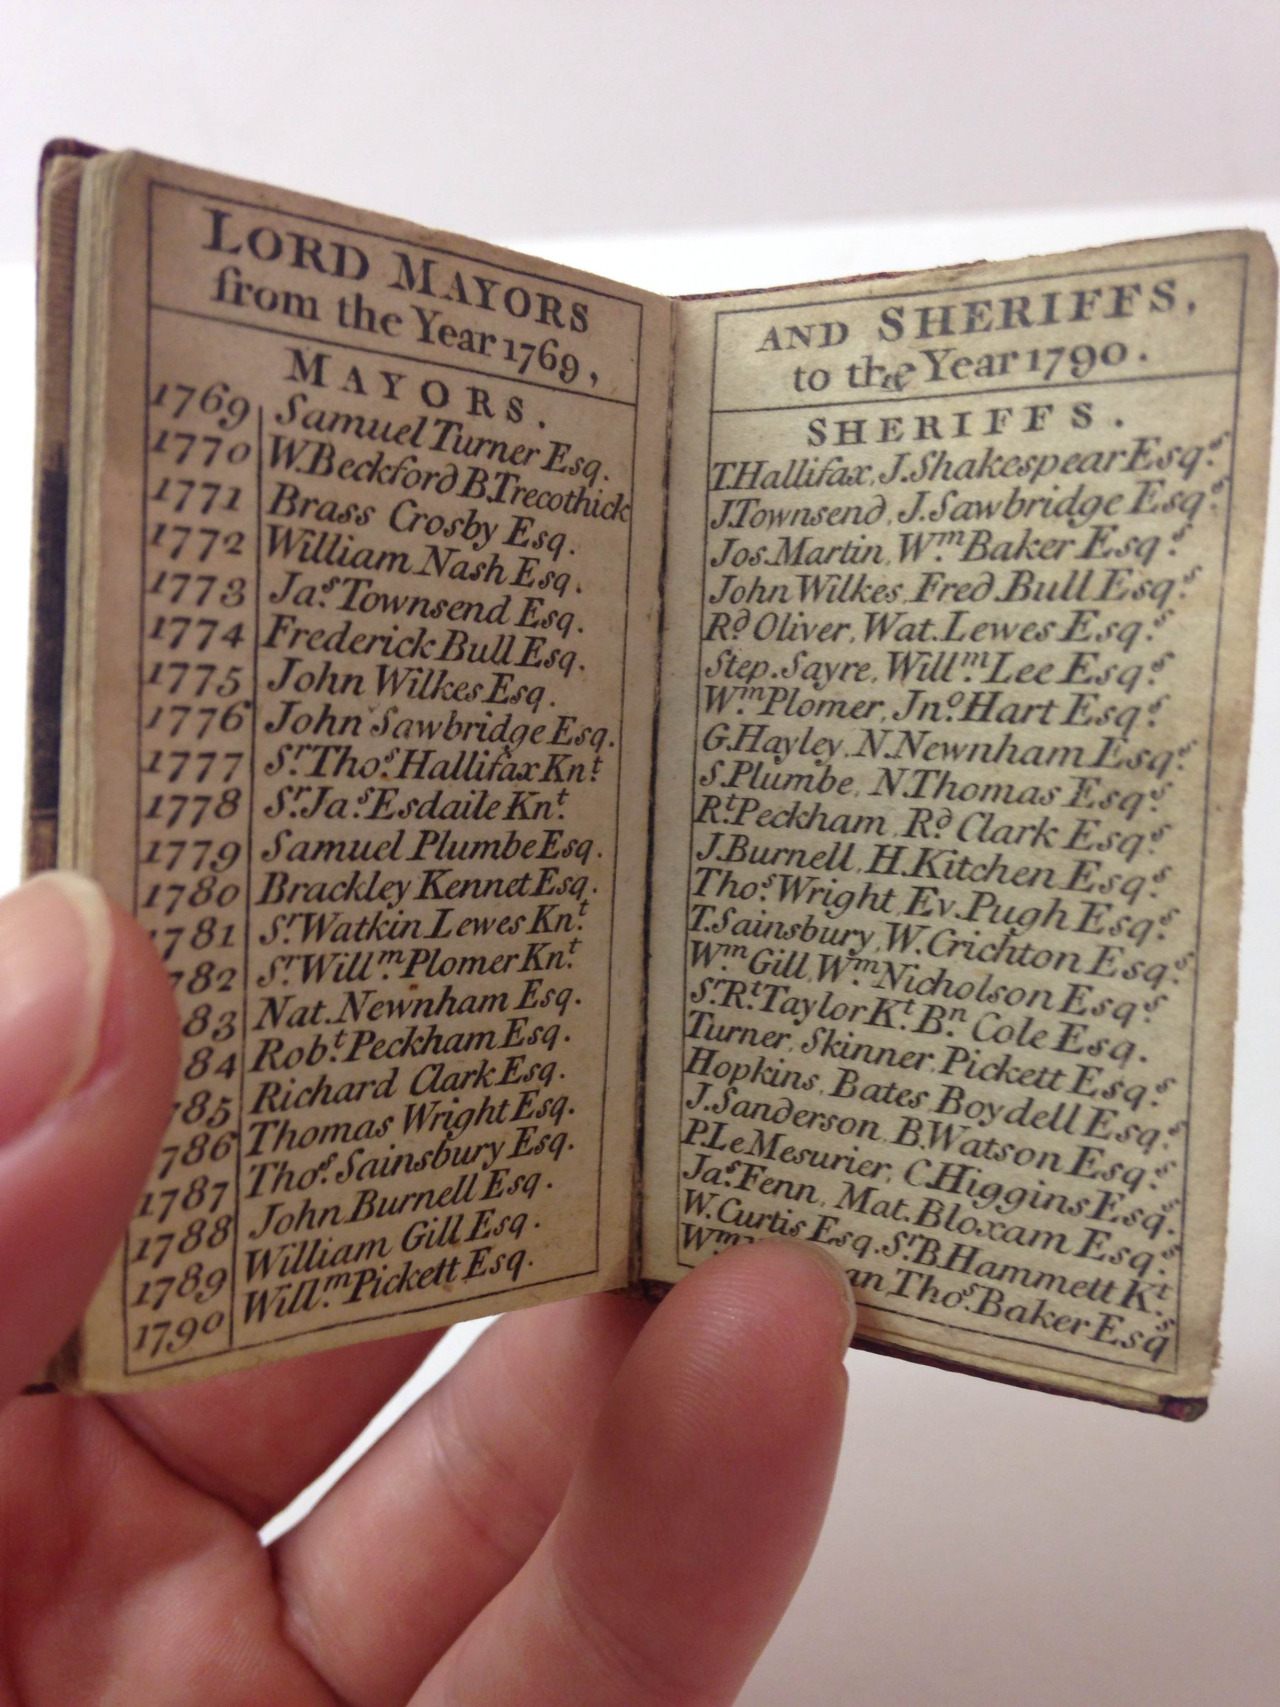 LORD MAYORS
from the Year 1769,
MAYORS.
1769 Samuel Turner Esq.
1770 W.Beckford B.Trecothick
1771 Brass Crosby Esq.
1772 William Nash Esq.
1773 Jas. Townsend Esq.
1774 Frederick Bull Esq.
1775 John Wilkes Esq.
1776 John Sawbridge Esq.
1777 Sr. Thos. Hallifax Knt.
1778 Sr. Jas. Esdaile Knt.
1779 Samuel Plumbe Esq.
1780 Brackley Kennet Esq.
1781 Sr. Watkin Lewes Knt.
782 Sr. Willm. Plomer Knt.
83 Nat. Newnham Esq.
84 Robt. Peckham Esq.
785 Richard Clark Esq.
1786 Thomas Wright Esq.
1787 Thos. Sainsbury Esq.
1788 John Burnell Esq.
1789 William Gill Esq.
1790 Willm. Pickett Esq.
AND SHERIFFS,
to the Year 1790.
SHERIFFS.
T.Hallifax, J.Shakespear Esqs.
J.Townsend, J.Sawbridge Esqs.
Jos. Martin, Wm. Baker Esqs.
John Wilkes, Fred. Bull Esqs.
Rd. Oliver, Wat. Lewes Esqs.
Step. Sayre, Willm. Lee Esqs.
Wm. Plomer, Jno. Hart Esqs.
G.Hayley, N.Newnham Esqs.
S.Plumbe, N.Thomas Esqs.
Rt. Peckham, Rd. Clark Esqs.
J.Burnell, H.Kitchen Esqs.
Thos. Wright, Ev. Pugh Esqs.
T.Sainsbury, W.Crichton Esqs.
Wm. Gill, Wm. Nicholson Esqs.
Sr. Rt. Taylor Kt. Bn. Cole Esq.
Turner, Skinner, Pickett Esqs.
Hopkins, Bates, Boydell Esqs.
J.Sanderson, B.Watson Esqs.
P.Le Mesurier, C.Higgins Esqs.
Jas. Fenn, Mat. Bloxam Esqs.
W.Curtis Esq. Sr. B.Hammett Kt.
Wm. an Thos. Baker Esqs